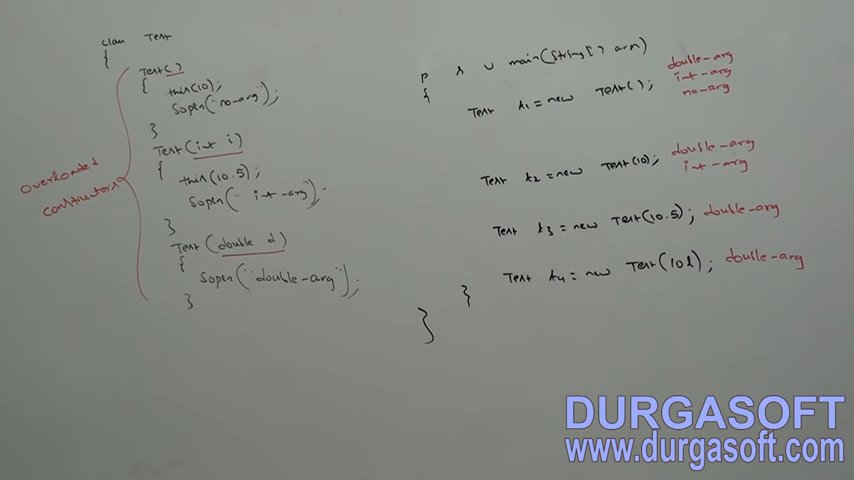 class Test
{
Test()
{
this(10);
Sopln("no-arg");
}
Test(int i)
{
this(10.5);
Sopln("int-arg");
}
Test(double d)
{
Sopln("double-arg");
}
overloaded
constructors
p s v main(String[] args)
{
Test t1 = new Test(); double-arg
int-arg
no-arg
Test t2 = new Test(10); double-arg
int-arg
Test t3 = new Test(10.5); double-arg
Test t4 = new Test(10l); double-arg
}
}
DURGASOFT
www.durgasoft.com